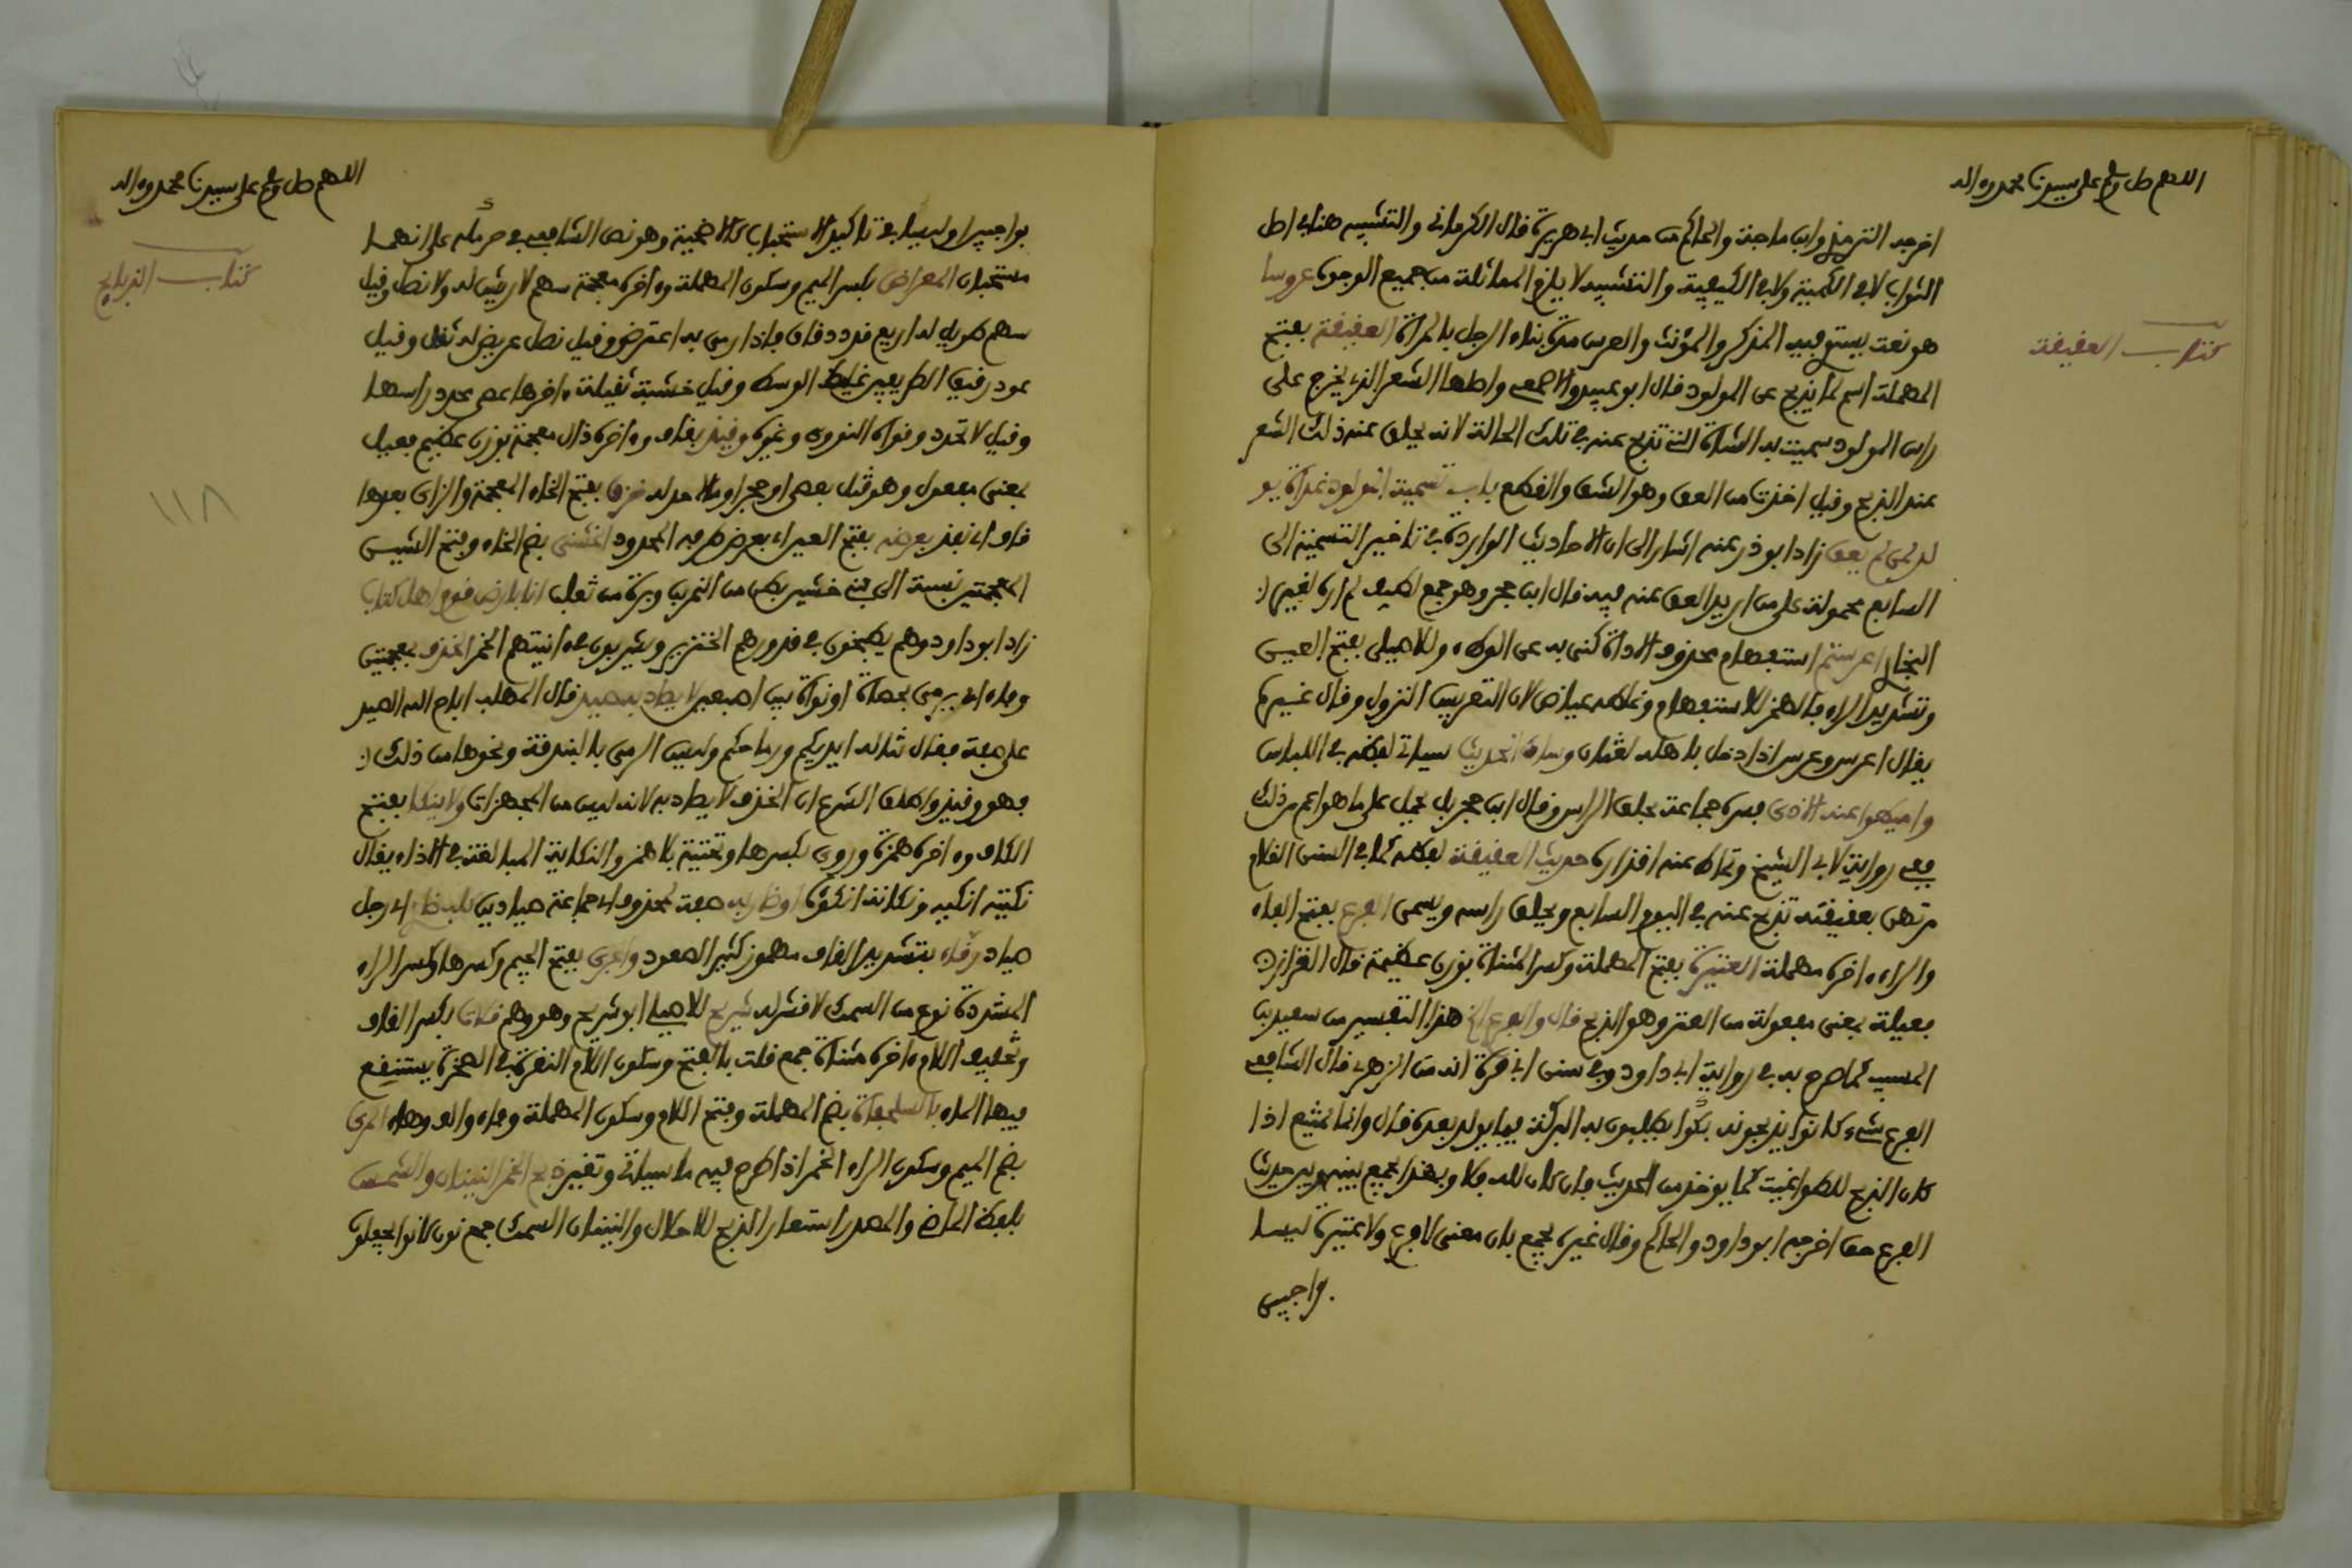 اللهم صل وسلم على سيدنا محمد وءاله
اخرجه الترمذي وابن ماجة والحاكم من حديث ابي هريرة قال الكرماني والتشبيه هنا في اصل
الثواب لا في الكمية ولا في الكيفية والتشبيه لا يلزم المماثلة من جميع الوجوه عروسا
هو نعت يستوي فيه المذكر والمؤنث والعرس مدة بناء الرجل بالمراة العقيقة بفتح
كتاب العقيقة
المهملة اسم لما يذبح عن المولود قال ابو عبيد والاصمعي واصلها الشعر الذي يخرج على
راس المولود سميت به الشاة التي تذبح عنه في تلك الحالة لانه يحلق عنه ذلك الشعر
عند الذبح وقيل اخذت من العق وهو الشق والقطع باب تسمية المولود غداة يو
لد لمن لم يعق زاد ابو ذر عنه اشار الى ان الاحاديث الواردة في تاخير التسمية الى
السابع محمولة على من اريد العق عنه فيه قال ابن حجر وهو جمع لطيف لم اره لغير
البخاري اعرستم استفهام محذوف الاداة كنى به عن الوطء وللاصيلي بفتح العين
وتشديد الراء فالهمز للاستفهام وغلطه عياض لان التعريس النزول وقال غيره
يقال اعرس وعرس اذا دخل باهله لغتان وساق الحديث سياتي لفظه في اللباس
واميطوا عنه الاذى فسره جماعة بحلق الراس وقال ابن حجر بل يحمل على ما هو اعم من ذلك
ففي رواية لابي الشيخ وتماط عنه اقذاره حديث العقيقة لفظه كما في السنن الغلام
مرتهن بعقيقته تذبح عنه في اليوم السابع ويحلق راسه ويسمى الفرع بفتح الفاء
والراء ءاخره مهملة العتيرة بفتح المهملة وكسر المثناة بوزن عظيمة قال القزاز
فعيلة بمعنى مفعولة من العتر وهو الذبح قال والفرع الخ هذا التفسير من سعيد بن
المسيب كما صرح به في رواية ابي داود وفي سنن ابي قرة انه من الزهري قال الشافعي
الفرع شيء كانوا يذبحونه بكرا يطلبون به البركة فيما يولد بعده قال وانما يمنع اذا
كان الذبح للطواغيت كما يوخذ من الحديث فان كان لله فلا وبهذا يجمع بينه وبين حديث
الفرع حق اخرجه ابو داود والحاكم وقال غيره يجمع بان معنى لا فرع ولا عتيرة ليسا
واجبين
اللهم صل وسلم على سيدنا محمد وءاله
بواجبين او ليسا في تاكيد الاستحباب كالاضحية وهو نص الشافعي في حرملة على انهما
كتاب الذبايح
مستحبان المعراض بكسر الميم وسكون المهملة وءاخره معجمة سهم لا ريش له ولا نصل وقيل
سهم طويل له اربع قذذ دقاق فاذا رمي به اعترض وقيل نصل عريض له ثقل وقيل
عود رقيق الطرفين غليظ الوسط وقيل خشبة ثقيلة ءاخرها عصى محدد راسها
وقيل لا تحدد وقواه النووي وغيره وقيذ بقاف وءاخره ذال معجمة بوزن عظيم فعيل
بمعنى مفعول وهو قتل بعصى او حجر او ما لا حد له خزق بفتح الخاء المعجمة والزاي بعدها
قاف اي نفذ بعرضه بفتح العين اي بعرض طرفه المحدود الخشني بضم الخاء وفتح الشين
المعجمتين نسبة الى بني خشين بطن من النمر بن وبرة من ثعلب انا بارض قوم اهل كتاب
زاد ابو داود وهم يطبخون في قدورهم الخنزير ويشربون في ءانيتهم الخمر الخذف بمعجمتين
وفاء اي يرمي بحصاة او نواة بين اصبعين لا يصاد به صيد قال المهلب اباح الله الصيد
على صفة فقال تناله ايديكم ورماحكم وليس الرمي بالبندقة ونحوها من ذلك
فهو وقيذ واطلق الشرع ان الخذف لا يصاد به لانه ليس من المجهزات ولا ينكا بفتح
الكاف وءاخره همزة وروي بكسرها وتحتية بلا همز والنكاية المبالغة في الاذاء يقال
نكيته انكيه ونكاته انكؤه او ضارية صفة لمحذوف اي جماعة صيادين كلب ضار اي رجل
صياد رقاء بتشديد القاف مهموز كثير الصعود والجري بفتح الجيم وكسرها وكسر الراء
المشددة نوع من السمك لا قشر له شريح للاصيلي ابو شريح وهو وهم قلات بكسر القاف
وتخفيف اللام ءاخره مثناة جمع قلت بالفتح وسكون اللام النقرة في الصخرة يستنقع
فيها الماء بالسلحفاة بضم المهملة وفتح اللام وسكون المهملة وفاء والف وهاء المري
بضم الميم وسكون الراء الخمر اذا طرح فيه ما سياتي وتغير ذبح الخمر النينان والشمس
بلفظ الماضي والمصدر استعار الذبح للاحلال والنينان السمك جمع نون كانوا يجعلون
١١٨